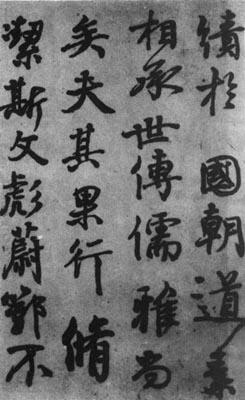 績於 國朝道素
相承世傳儒雅尚
矣夫其果行脩
絜斯文彪蔚鄂不